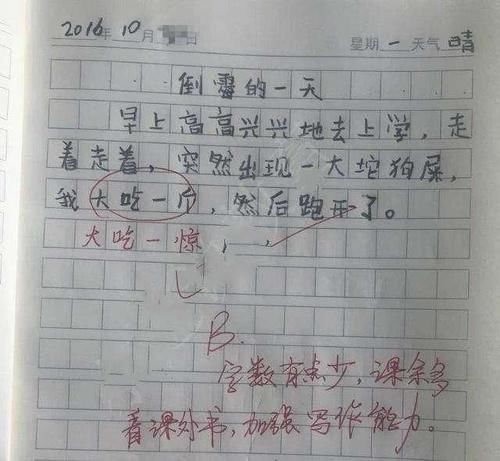 2016年10月 日 星期一 天气 晴
倒霉的一天
早上高高兴兴地去上学，走
着走着，突然出现一大坨狗屎，
我大吃一斤，然后跑开了。
大吃一惊，
B.
字数有点少，课余多
看课外书，加强写作能力。